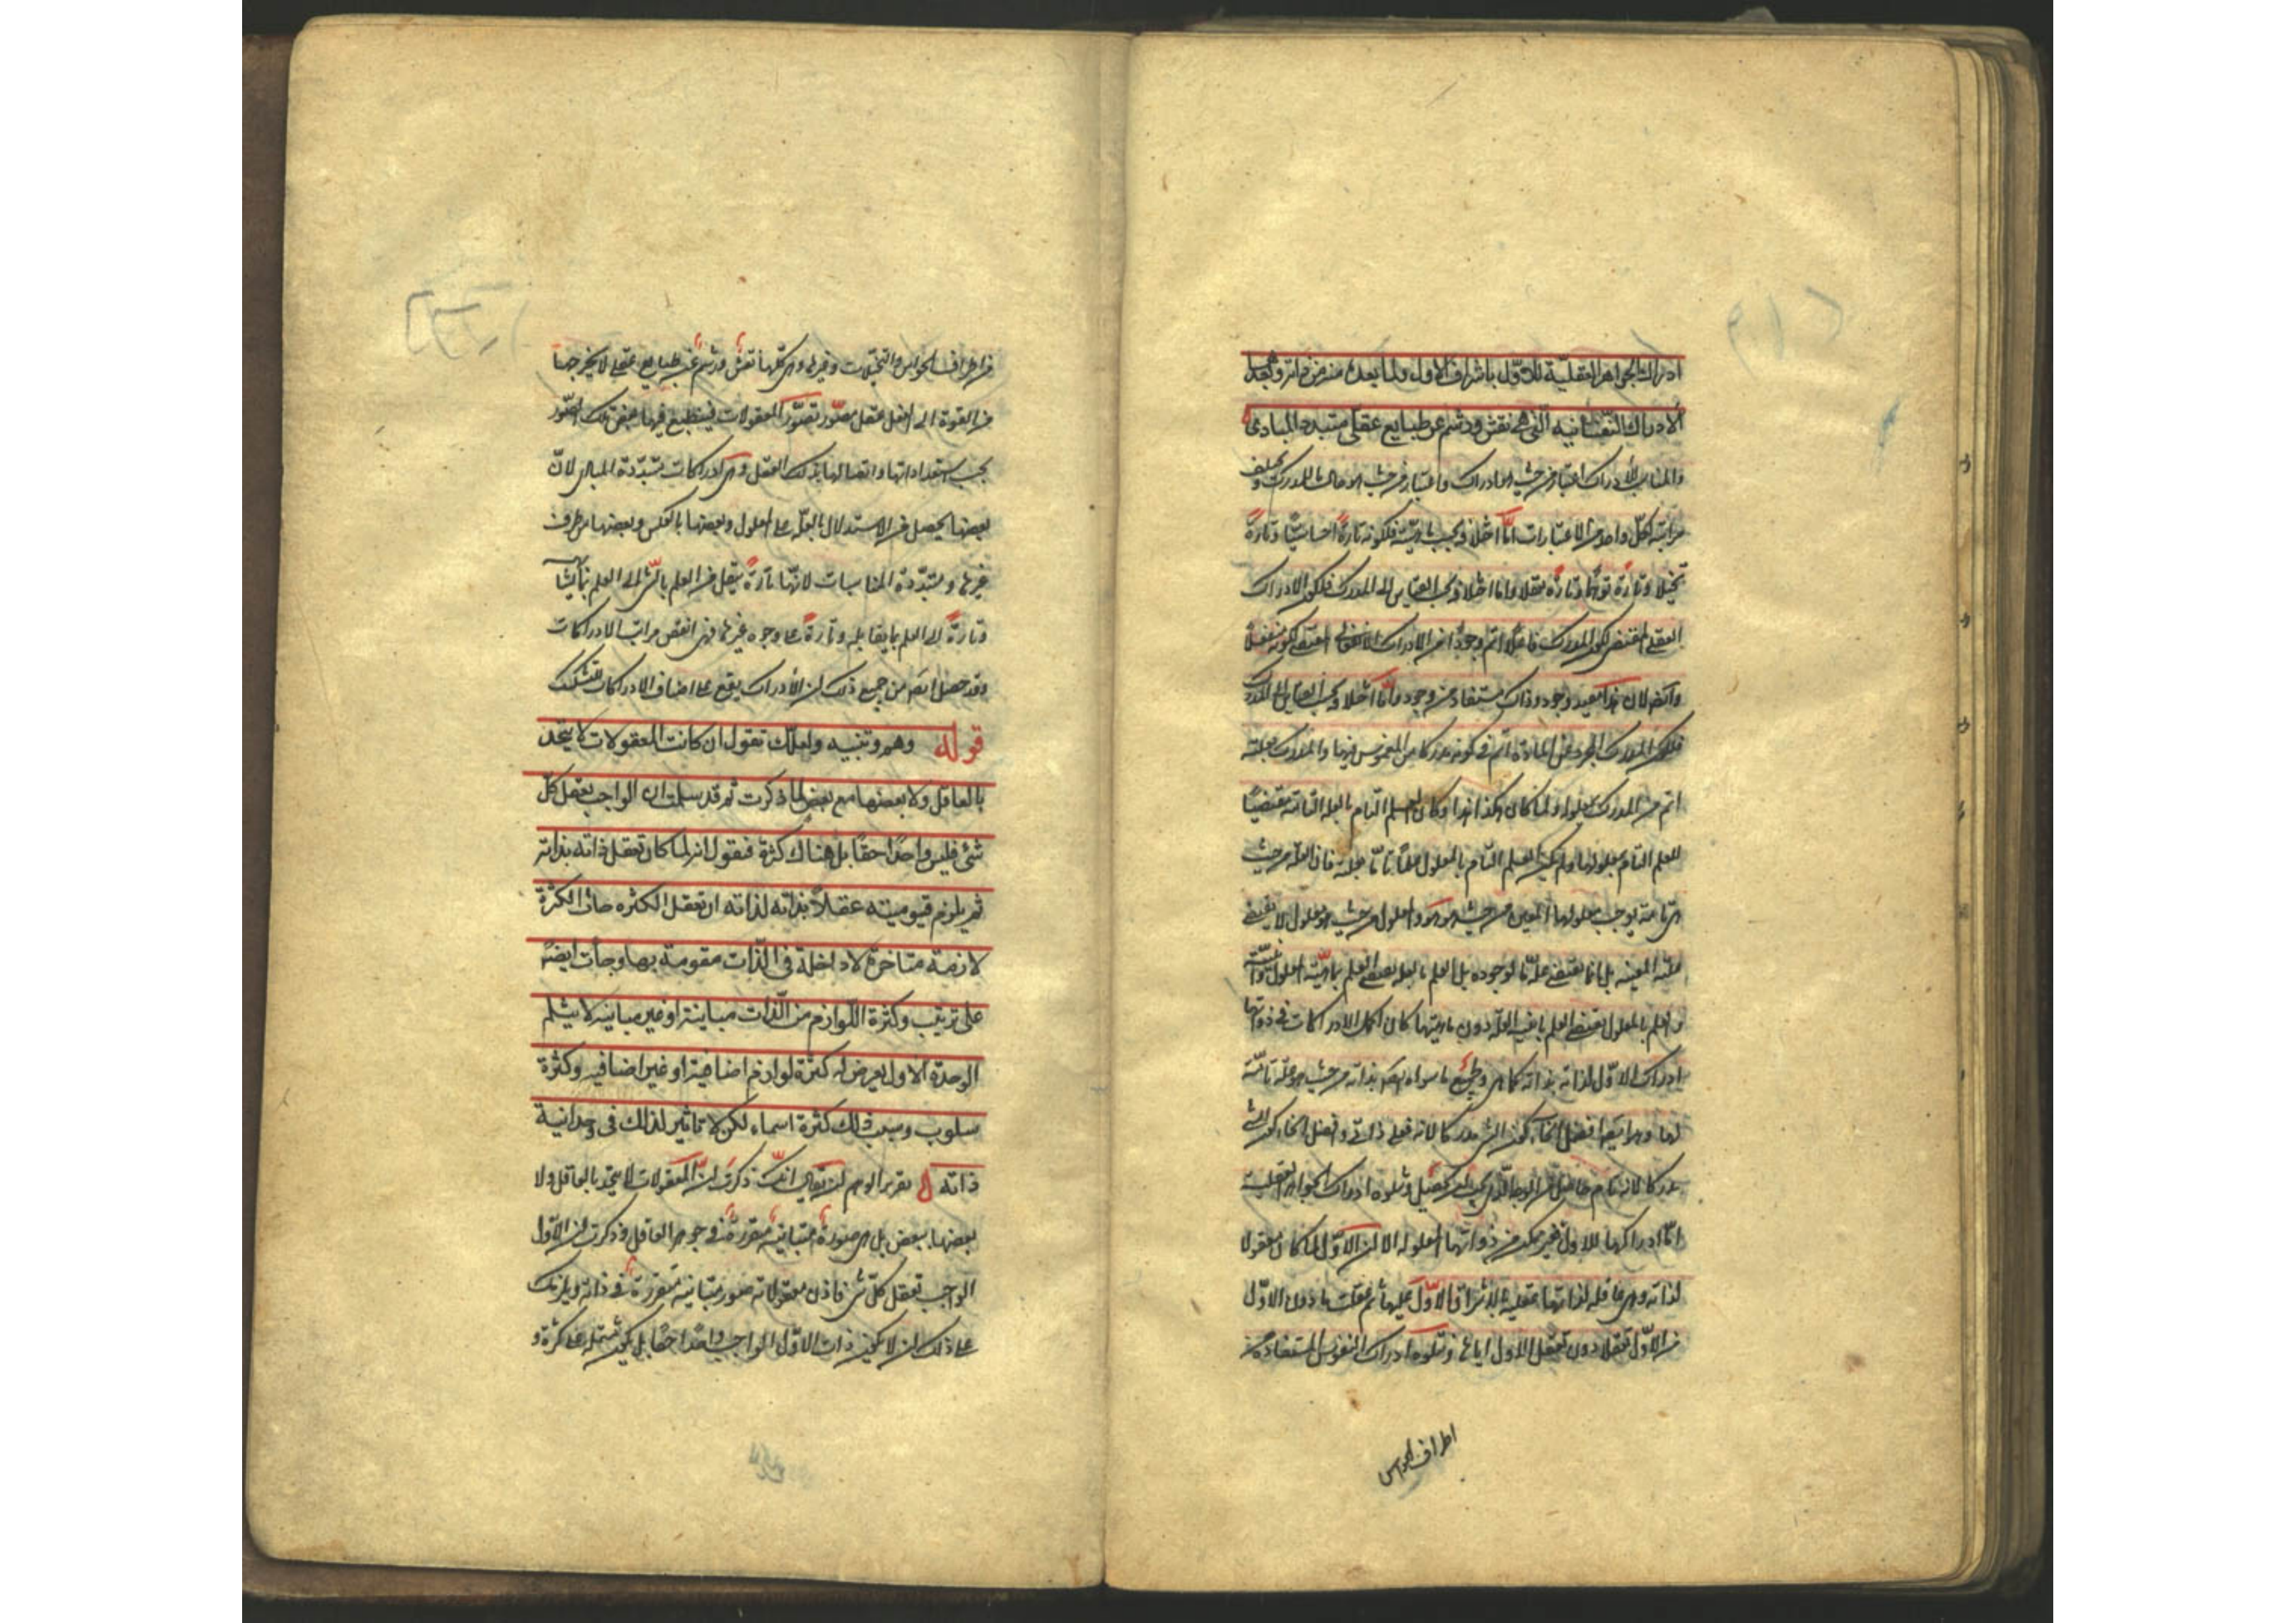 ادراك الجواهر العقلية للاول باشراق الاول ولما بعده منه من ذاته وبعدهما
الادراكات النفسانية التي هي نقش ورشم عن طبايع عقلي متبدد المبادي
والمناسب للادراك اعتبار من حيث هو ادراك واعتبار من حيث هو حال للمدرك ويختلف
مراتبه لكل واحد من الاعتبارات اما اختلافه بحسب ماهيته فلكونه تارة احساسيا وتارة
تخيلا وتارة توهما وتارة تعقلا واما اختلافه بحسب القياس الى المدرك فلكون الادراك
العقلي المقتضي لكون المدرك فاعلا اتم وجودا من الادراك الانفعالي المقتضي لكونه منفعلا
وايضا لان هذا مفيد وجود وذاك مستفاد من وجود واما اختلافه بحسب القياس الى المدرك
فلكون المدرك المجرد عن المادة اتم في كونه مدركا من المغموس فيها والمدرك بعلته
اتم من المدرك بمعلوله ولما كان هكذا هذا وكان العلم التام بالعلة التامة مقتضيا
للعلم التام بمعلولها ولم يكن العلم التام بالمعلول علما تاما بعلته فان العلة من حيث
هي تامة يوجب معلولها المعين من حيث هو هو والمعلول من حيث هو معلول لا يقتضي
علته المعينة بل انما يقتضي علة ما لوجوده بل العلم بالعلة يقتضي العلم بماهية المعلول وانيته
والعلم بالمعلول يقتضي العلم بانية العلة دون ماهيتها كان اكمل الادراكات في ذواتها
ادراك الاول لذاته بذاته كما هي ولجميع ما سواه ايضا بذاته من حيث هو علة تامة
لها وهو ايضا افضل انحاء كون الشئ مدركا لانه فعلي ذاتي وافضل انحاء كون الشئ
مدركا لانه تام حاصل من الوجه الذي يجب ان يحصل ويتلوه ادراك الجواهر العقلية
اما ادراكها للاول فغير ممكن من ذواتها المعلولة الا ان الاول لما كان معقولا
لذاته وهي عاقلة لذاتها عقليه باشراق الاول عليها ثم عقلت ما دون الاول
من الاول تعقلا دون تعقل الاول اياها ويتلوه ادراك النفوس المستفادة من
اطراف الحواس
من اطراف الحواس والتخيلات وغيرها وهي كلها نقش ورشم عن طبايع عقلي لا يخرجها
من القوة الى الفعل عقل مصور تصور المعقولات فينطبع فيها بعض تلك الصور
بحسب استعداداتها واتصالها بذلك العقل وهي ادراكات متبددة المبادي لان
بعضها يحصل من الاستدلال بالعلة على المعلول وبعضها بالعكس وبعضها من طرف
غيرها ومتبددة المناسبات لانها تارة ينتقل من العلم بالشئ الى العلم بما يشابهه
وتارة الى العلم بما يقابله وتارة على وجوه غيرها فهي انقص مراتب الادراكات
وقد حصل ايضا من جميع ذلك ان الادراك يقع على اصناف الادراكات بالتشكيك
قوله وهم وتنبيه ولعلك تقول ان كانت المعقولات لا يتحد
بالعاقل ولا بعضها مع بعض لما ذكرت ثم قد سلمت ان الواجب يعقل كل
شئ فليس واحدا حقا بل هناك كثرة فنقول انه لما كان تعقل ذاته بذاته
ثم يلزم قيوميته عقلا بذاته لذاته ان تعقل الكثره جات الكثرة
لازمة متاخرة لا داخلة في الذات مقومة بها وجاءت ايضا
على ترتيب وكثرة اللوازم من الذات مباينة او غير مباينه لا يثلم
الوحدة الاول يعرض له كثرة لوازم اضافية او غير اضافيه وكثرة
سلوب وبسبب ذلك كثرة اسماء لكن لا تاثير لذلك في وحدانية
ذاته تقرير الوهم ان يقال انك ذكرت ان المعقولات لا يتحد بالعاقل ولا
بعضها ببعض بل هي صورة متباينة متقررة في جوهر العاقل وذكرت ان الاول
الواجب تعقل كل شئ فاذن معقولاته صور متباينة متقررة في ذاته ويلزمك
على ذلك ان لا يكون ذات الاول الواجب واحدا حقا بل يكون مشتملة على كثرة و